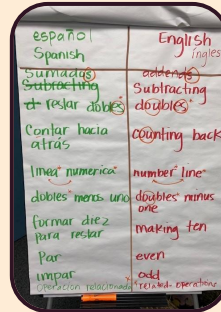 español English
Spanish ingles
Sumados addends
Subtracting Subtracting
restar dobles doubles
Contar hacia counting back
atrás
linea numerica number line
dobles menos uno doubles minus
one
formar diez making ten
para restar
Par even
impar odd
operacion relacionada related operations